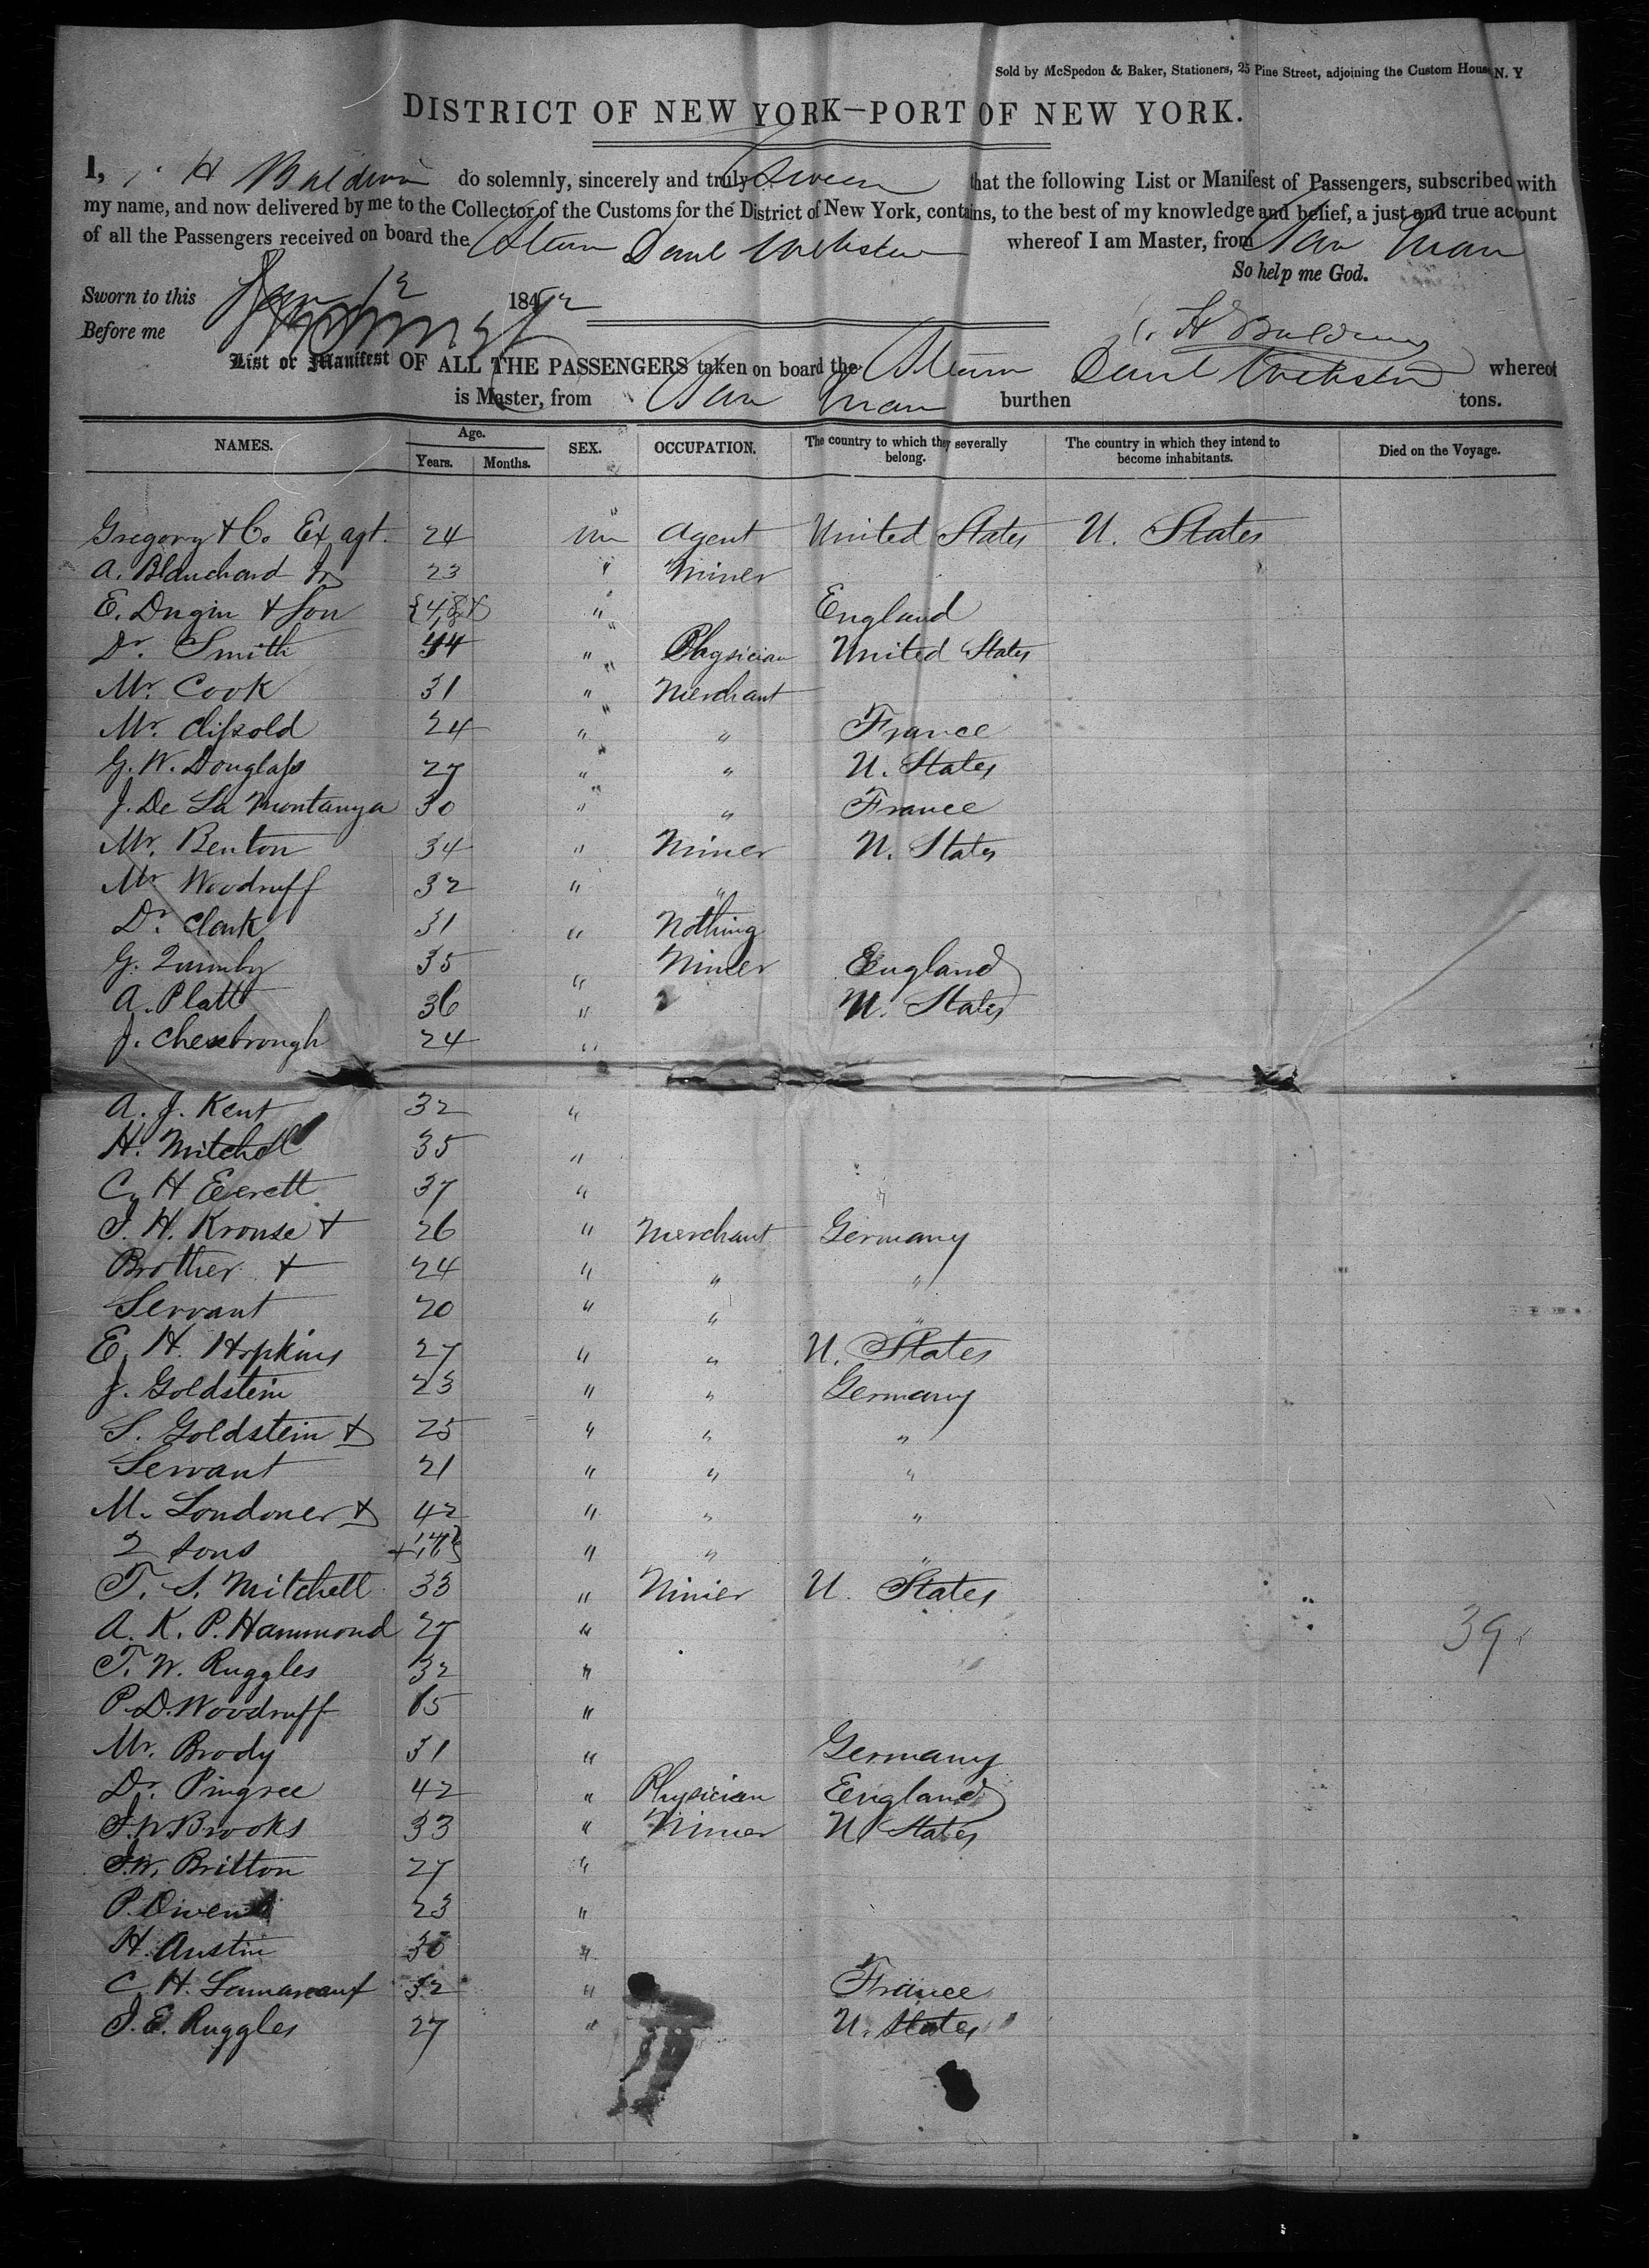 Sold by McSpedon & Baker, Stationers, 25 Pine Street, adjoining the Custom House N. Y
DISTRICT OF NEW YORK—PORT OF NEW YORK.
I, H Baldwin do solemnly, sincerely and truly Swear that the following List or Manifest of Passengers, subscribed with
my name, and now delivered by me to the Collector of the Customs for the District of New York, contains, to the best of my knowledge and belief, a just and true account
of all the Passengers received on board the Steam Danl Webster whereof I am Master, from San Juan
So help me God.
Sworn to this Jan 12 1852
Before me
H Baldwin
List or Manifest OF ALL THE PASSENGERS taken on board the Steam Danl Webster whereof
is Master, from San Juan burthen tons.
NAMES. Age. Years. Months. SEX. OCCUPATION. The country to which they severally belong. The country in which they intend to become inhabitants. Died on the Voyage.
Gregory & Co Ex agt. 24 m Agent United States U. States
A. Blanchard Jr 23 " Miner
E. Dugin & Son 48 & " England
Dr. Smith 44 " Physician United States
Mr. Cook 31 " Merchant
Mr. Clissold 24 " " France
G. W. Douglass 27 " " U. States
J. De La Montanya 30 " " France
Mr. Benton 34 " Miner U. States
Mr Woodruff 32 " "
Dr. Clark 31 " Nothing
G. Quimby 35 " Miner England
A. Platt 36 " " U. States
J. Chesebrough 24 "
A. J. Kent 32 "
H. Mitchell 35 "
C. H Everett 37 "
J. H. Krouse & 26 " Merchant Germany
Brother & 24 " " "
Servant 20 " " "
E. H. Hopkins 27 " " U. States
J. Goldstein 23 " " Germany
S. Goldstein & 25 " " "
Servant 21 " " "
M. Londoner & 42 " " "
2 sons " " "
T. S. Mitchell 33 " Miner U. States
A. K. P. Hammond 27 "
39
T. W. Ruggles 32 "
P. D. Woodruff 15 "
Mr. Brody 31 " Germany
Dr. Pingree 42 " Physician England
J. W Brooks 33 " Miner U States
J. W. Britton 27 "
P. Owen 23 "
H. Austin 30 "
C. H. 32 " France
J. E. Ruggles 27 " U. States